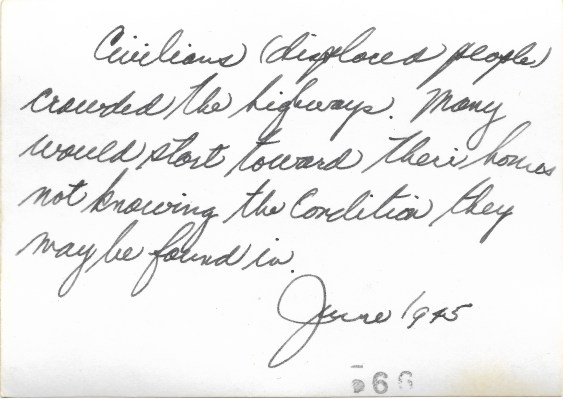 Civilians (displaced people)
crowded the highways. Many
would start toward their homes
not knowing the Condition they
may be found in.
June 1945
566